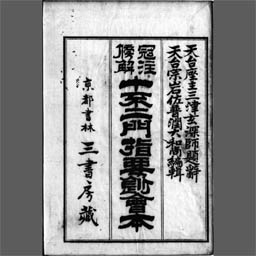 天台座主三津玄深師題辭
天台宗老佐普潤大和尚編輯
冠注
傍解
十不二門指要鈔會本
京都書林 三書房藏